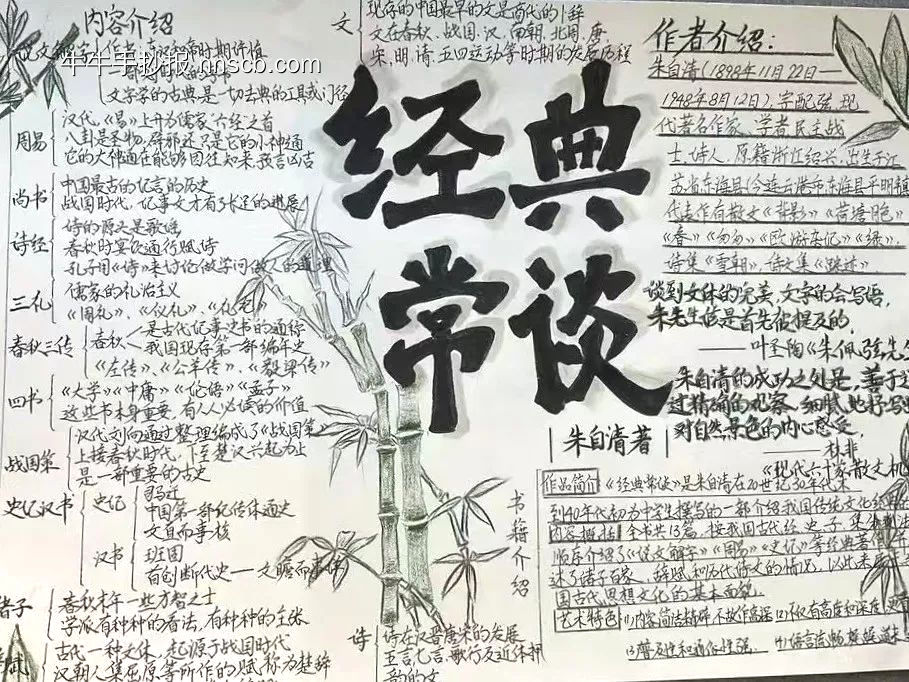 内容介绍
牛牛手抄报.nnscb.com
文字学的古典是一切古典的工具或门径
周易
汉代,《易》上升为儒家"六经"之首
八卦是圣物,辟邪还只是它的小神通
它的大神通在能够因往知来,预言凶吉
尚书
中国最古的记言的历史
战国时代,记事文才有了长足的进展
诗经
诗的源头是歌谣
春秋时宴饮通行赋诗
孔子用《诗》来讨论做学问做人的道理
三礼
儒家的礼治主义
《周礼》、《仪礼》、《礼记》
春秋三传
春秋
是古代记事史书的通称
我国现存第一部编年史
《左传》、《公羊传》、《穀梁传》
四书
《大学》《中庸》《论语》《孟子》
这些书本身重要,有人人必读的价值
战国策
汉代刘向通过整理编成了《战国策》
上接春秋时代,下至楚汉兴起为止
是一部重要的古史
史记汉书
史记
司马迁
中国第一部纪传体通史
文直而事核
汉书
班固
首创断代史——文赡而事详
诸子
春秋末年一些才智之士
学派有种种的看法,有种种的主张
古代一种文体,起源于战国时代
汉朝人集屈原等所作的赋称为楚辞
文
现存的中国最早的文是商代的卜辞
文在春秋、战国、汉、南朝、北周、唐、
宋、明、清、五四运动等时期的发展历程
经典
常谈
朱自清著
书籍介绍
诗
诗在汉晋唐宋的发展
五言七言、歌行及近体押
韵的文
作者介绍:
朱自清(1898年11月22日—
1948年8月12日),字佩弦,现
代著名作家、学者、民主战
士、诗人,原籍浙江绍兴,出生于江
苏省东海县(今连云港市东海县平明镇
代表作有散文《背影》《荷塘月色》
《春》《匆匆》《欧游杂记》《绿》,
诗集《雪朝》,诗文集《踪迹》
谈到文体的完美,文字的会写语,
朱先生该是首先被提及的,
——叶圣陶《朱佩弦先
朱自清的成功之处是,善于
过精确的观察,细腻地抒写出
对自然景色的内心感受,
——林非
《现代六十家散文札
作品简介 《经典常谈》是朱自清在20世纪30年代末
到40年代初为中学生撰写的一部介绍我国传统文化经典
内容概括 全书共13篇,按我国古代经、史、子、集
顺序介绍了《说文解字》《周易》《史记》等经典著
述了诸子百家、辞赋和历代诗文的情况,以此来展
国古代思想文化的基本面貌。
艺术特色 (1)内容简洁精辟,不故作高深 (2)不仅有高度和深度
(3)普及性和通俗性强. (4)语言流畅